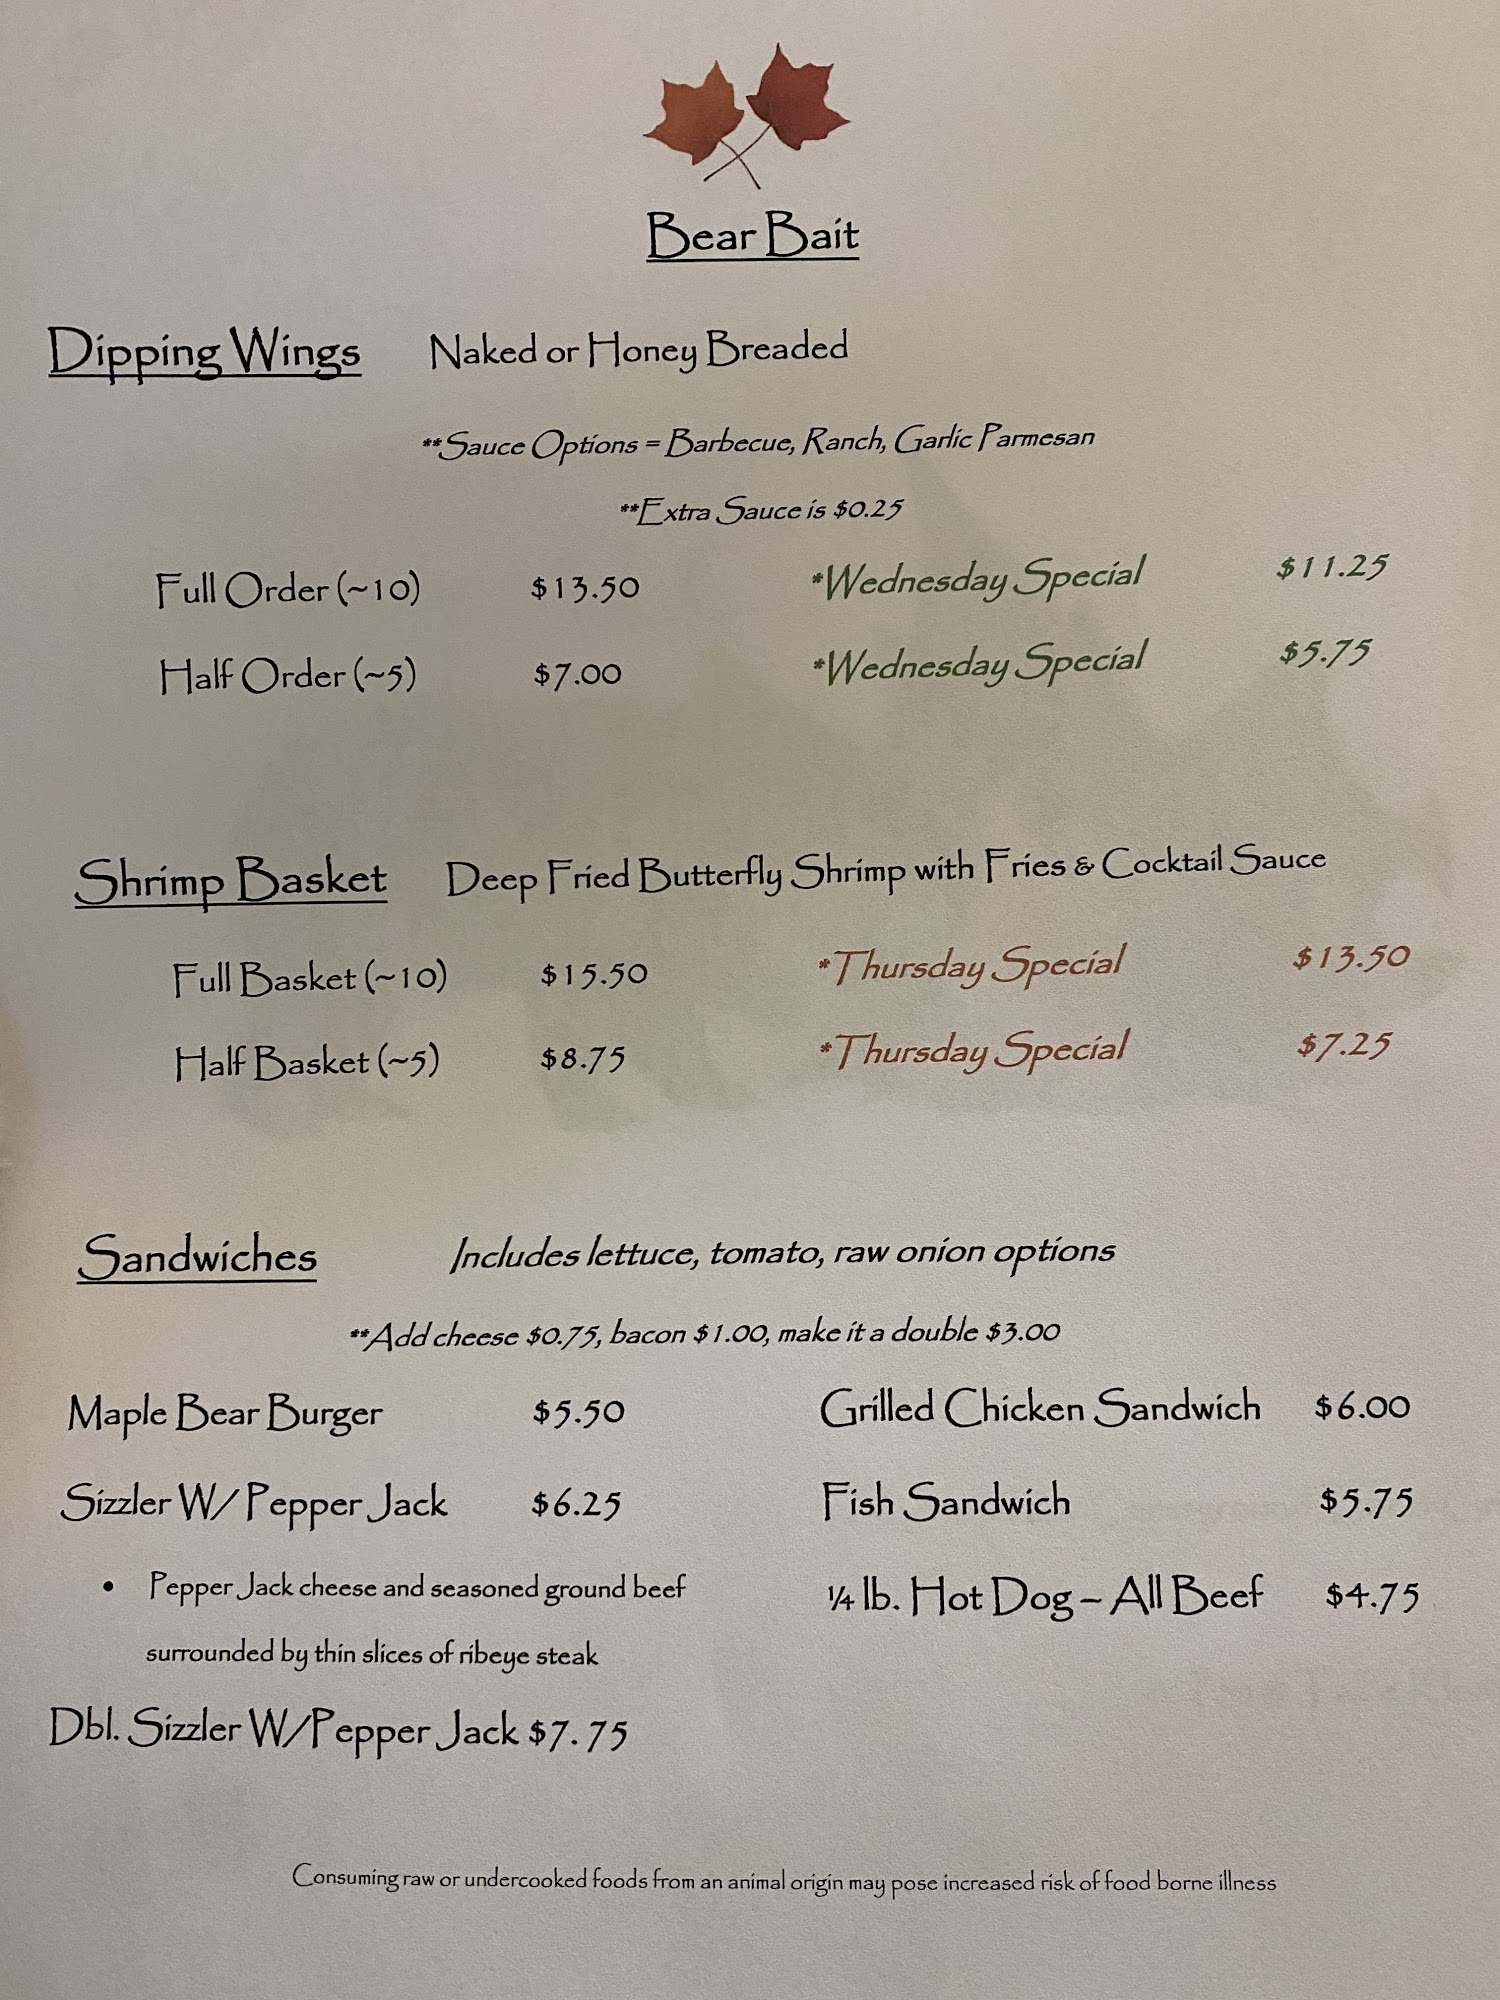 Bear Bait
Dipping Wings Naked or Honey Breaded
**Sauce Options = Barbecue, Ranch, Garlic Parmesan
**Extra Sauce is $0.25
Full Order (~10) $13.50 *Wednesday Special $11.25
Half Order (~5) $7.00 *Wednesday Special $5.75
Shrimp Basket Deep Fried Butterfly Shrimp with Fries & Cocktail Sauce
Full Basket (~10) $15.50 *Thursday Special $13.50
Half Basket (~5) $8.75 *Thursday Special $7.25
Sandwiches Includes lettuce, tomato, raw onion options
**Add cheese $0.75, bacon $1.00, make it a double $3.00
Maple Bear Burger $5.50 Grilled Chicken Sandwich $6.00
Sizzler W/ Pepper Jack $6.25 Fish Sandwich $5.75
• Pepper Jack cheese and seasoned ground beef ¼ lb. Hot Dog – All Beef $4.75
surrounded by thin slices of ribeye steak
Dbl. Sizzler W/Pepper Jack $7.75
Consuming raw or undercooked foods from an animal origin may pose increased risk of food borne illness